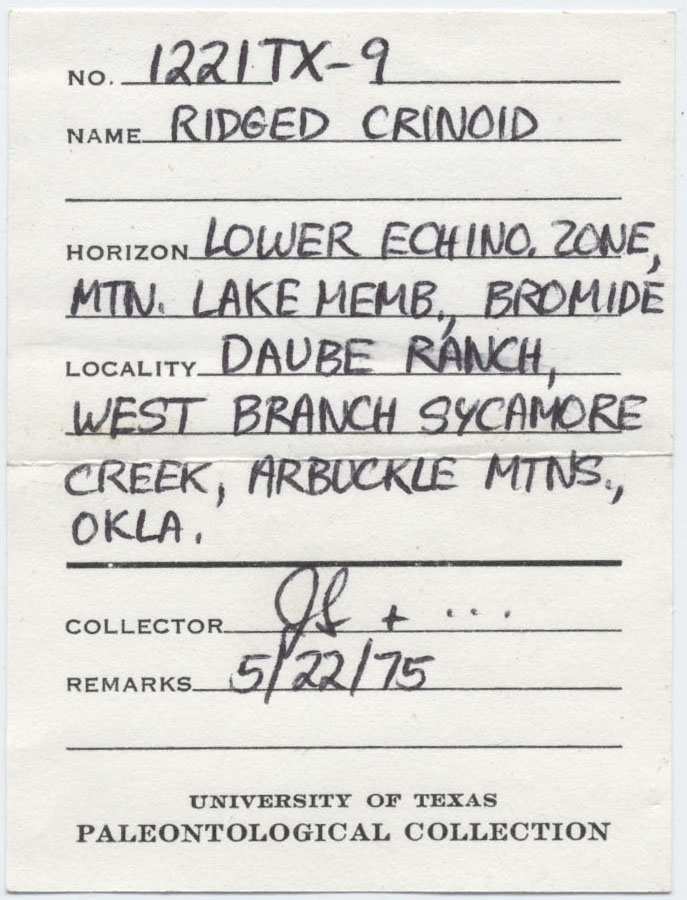 NO. 1221TX-9
NAME RIDGED CRINOID
HORIZON LOWER ECHINO. ZONE,
MTN. LAKE MEMB., BROMIDE
LOCALITY DAUBE RANCH,
WEST BRANCH SYCAMORE
CREEK, ARBUCKLE MTNS.,
OKLA.
COLLECTOR + ...
REMARKS 5/22/75
UNIVERSITY OF TEXAS
PALEONTOLOGICAL COLLECTION